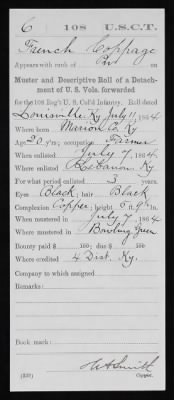 C 108 U.S.C.T.
French Coppage
Appears with rank of Pvt on
Muster and Descriptive Roll of a Detach-
ment of U. S. Vols. forwarded
for the 108 Reg't U. S. Col'd Infantry. Roll dated
Louisville Ky July 11, 1864
Where born Marion Co. Ky
Age 20 y'rs; occupation Farmer
When enlisted July 7, 1864
Where enlisted Lebanon Ky
For what period enlisted 3 years.
Eyes Black; hair Black
Complexion Copper; height 5 ft. 9 in.
When mustered in July 7, 1864
Where mustered in Bowling Green
Bounty paid $ 100; due $ 100
Where credited 4 Dist. Ky.
Company to which assigned
Remarks:
Book mark:
Smith
(339) Copyist.